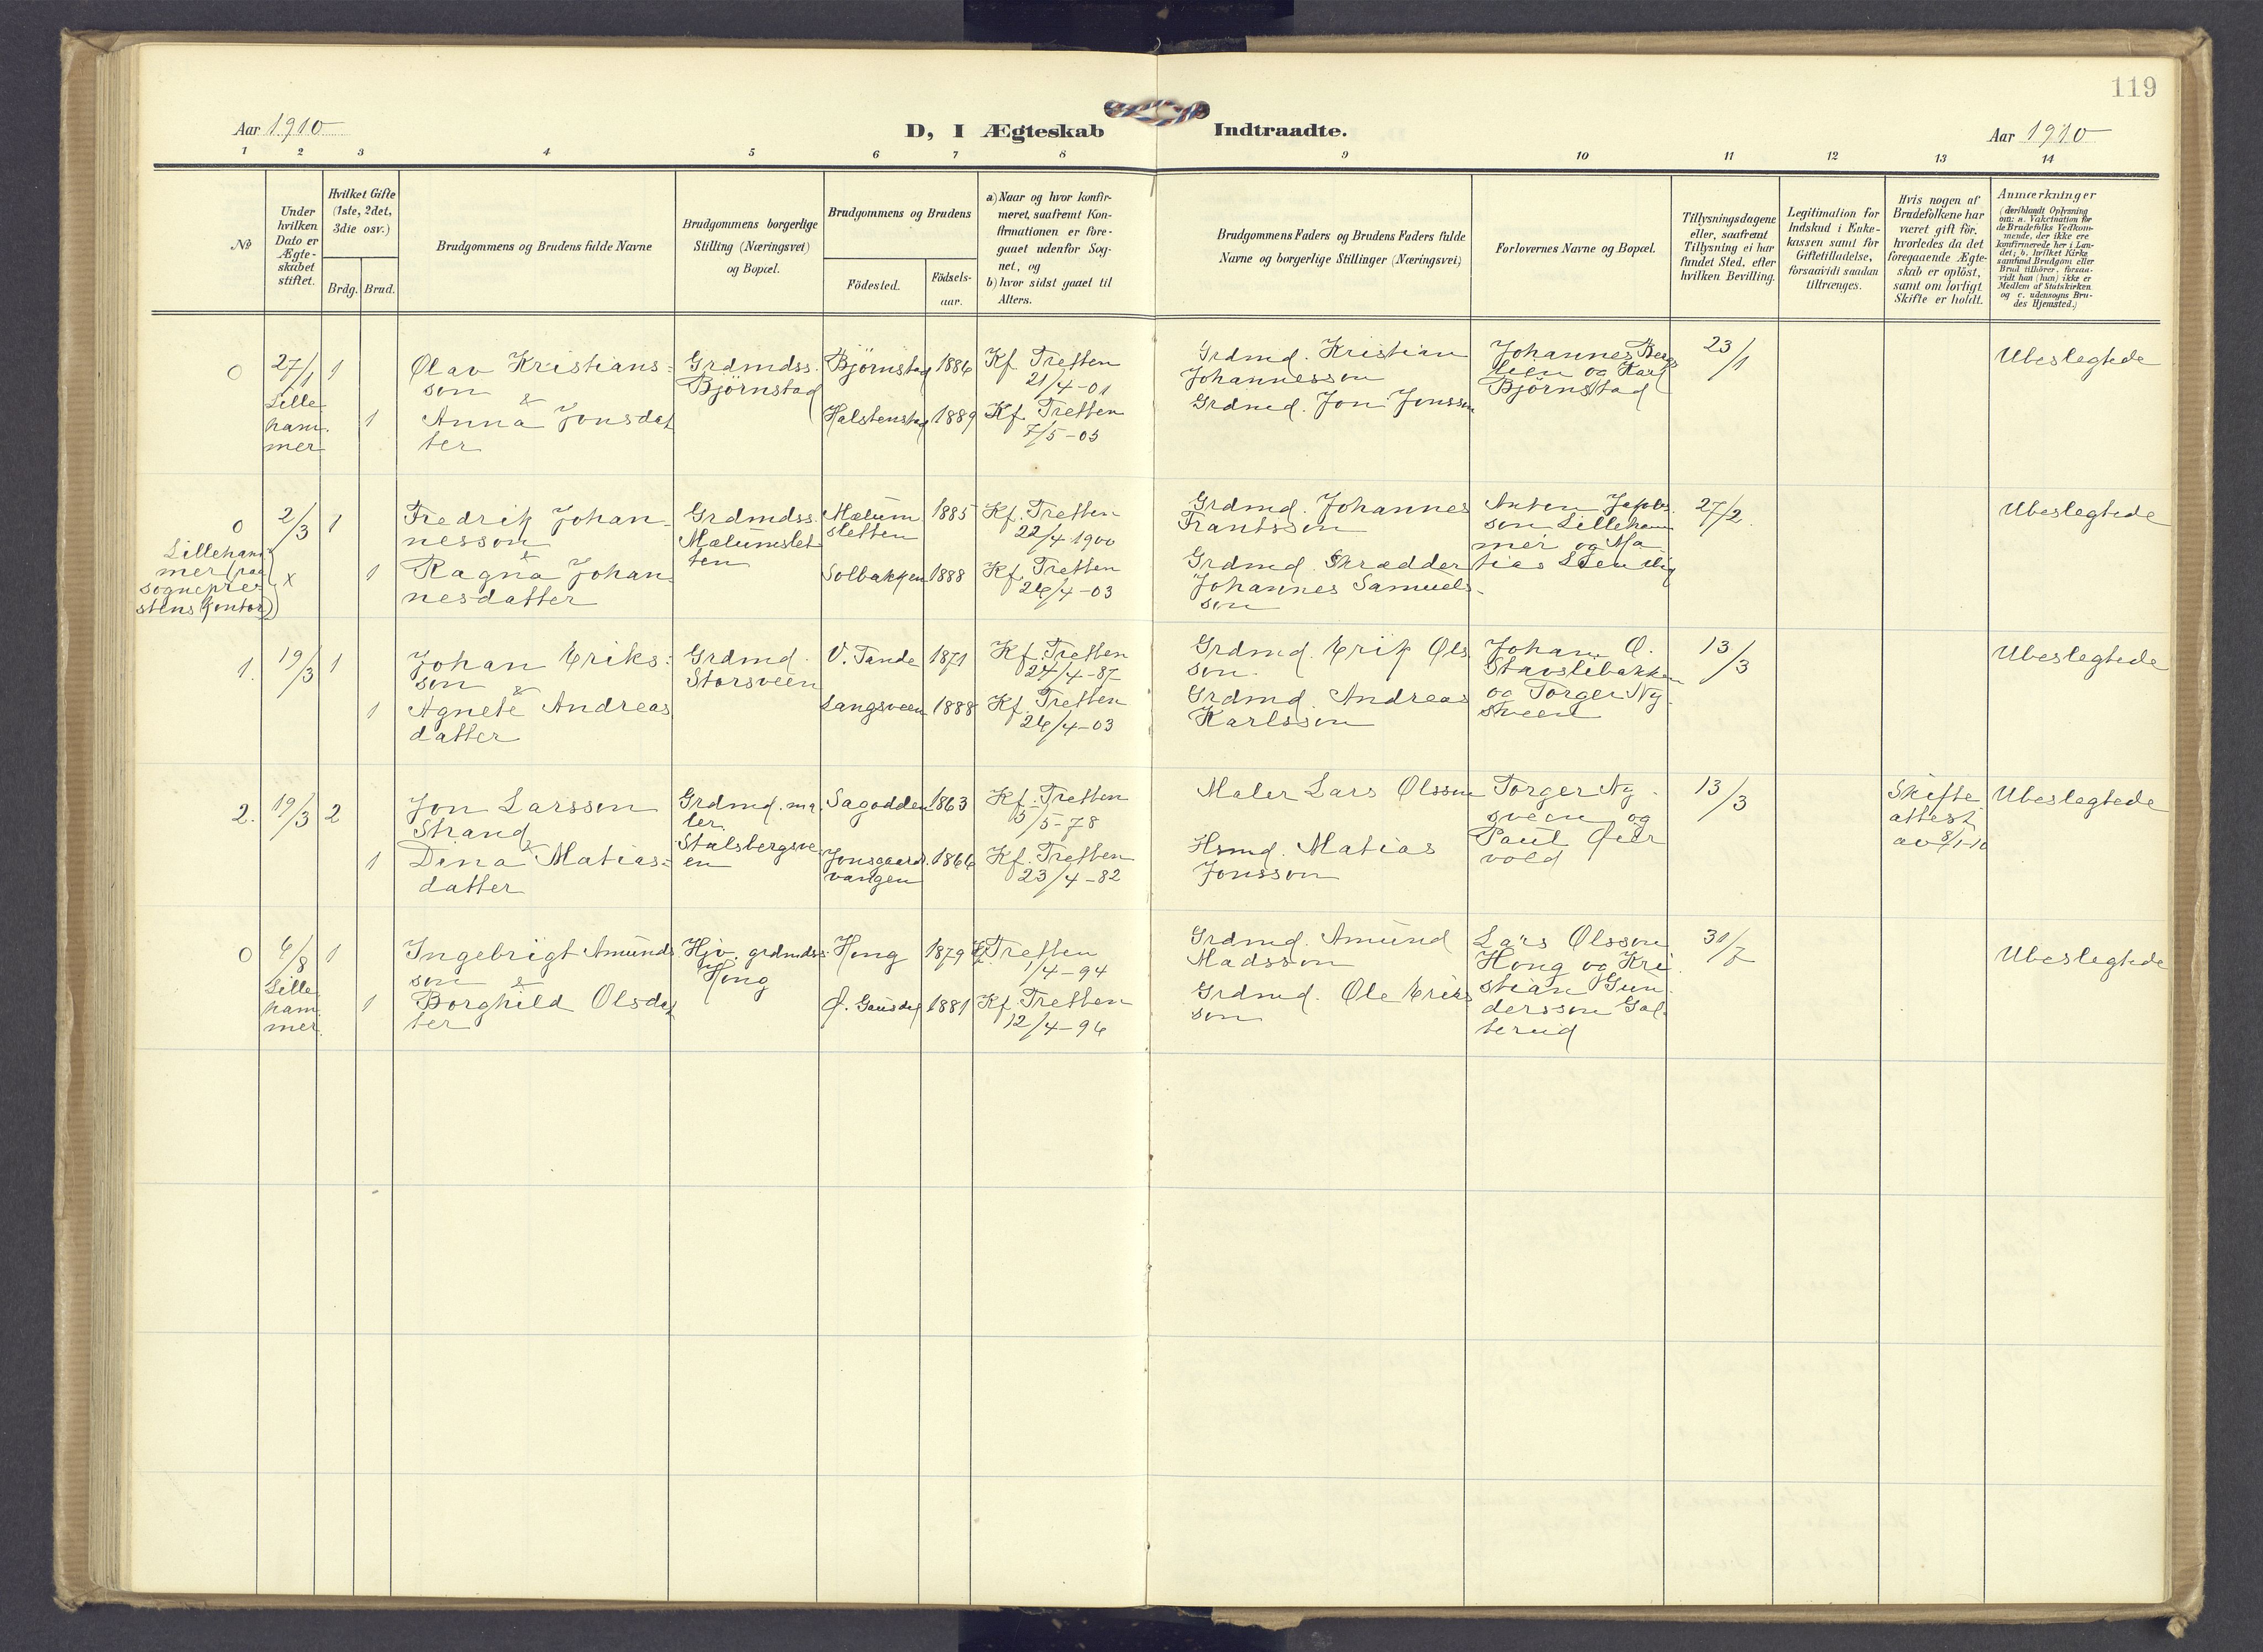 119
Aar 1910
D, I Ægteskab Indtraadte.
Aar 1910
1 2 3 4 5 6 7 8 9 10 11 12 13 14
No
Under
hvilken
Dato er
Ægte-
skabet
stiftet.
Hvilket Gifte
(1ste, 2det,
3die osv.)
Brdg. Brud.
Brudgommens og Brudens fulde Navne
Brudgommens borgerlige
Stilling (Næringsvei)
og Bopæl.
Brudgommens og Brudens
Födested.
Födsels-
aar.
a) Naar og hvor konfir-
meret, saafremt Kon-
firmationen er fore-
gaaet udenfor Sog-
net, og
b) hvor sidst gaaet til
Alters.
Brudgommens Faders og Brudens Faders fulde
Navne og borgerlige Stillinger (Næringsvei)
Forlovernes Navne og Bopæl.
Tillysningsdagene
eller, saafremt
Tillysning ei har
fundet Sted, efter
hvilken Bevilling.
Legitimation for
Indskud i Enke-
kassen samt for
Giftetilladelse,
forsaavidt saadan
tiltrænges.
Hvis nogen af
Brudefolkene har
været gift för,
hvorledes da det
foregaaende Ægte-
skab er oplöst,
samt om lovligt
Skifte er holdt.
Anmærkninger
(deriblandt Oplysning
om: a. Vakcination for
de Brudefolks Vedkom-
mende, der ikke ere
konfirmerede her i Lan-
det; b. hvilket Kirke-
samfund Brudgom eller
Brud tilhörer, forsaa-
vidt han (hun) ikke er
Medlem af Statskirken
og c. udensogns Bru-
des Hjemsted.)
0
27/1
Lille
ham
mer
1
Olav Kristians=
son &
1
Anna Jonsdat
ter
Grdmdss.
Björnstad
Björnstad 1886
Halstenstad 1889
Kf. Tretten
21/4-01
Kf. Tretten
7/5-05
Grdmd. Kristian
Johannesson
Grdmd. Jon Jonsson
Johannes Berg
lien og Karl
Björnstad
23/1
Ubeslegtede
0
2/3
Lilleham
mer (paa
sognepre
stens kontor)
x
1
Fredrik Johan-
nesson &
1
Ragna Johan
nesdatter
Grdmdss.
Mælumslet
ten
Mælum
sletten 1885
Solbakken 1888
Kf. Tretten
22/4 1900
Kf. Tretten
26/4-03
Grdmd. Johannes
Frantsson
Grdmd. Skrædder
Johannes Samuels-
son
Anton Jakobs
son Lilleham
mer og Ma
tias
27/2
Ubeslegtede
1.
19/3
1
Johan Eriks=
son &
1
Agnete Andreas
datter
Grdmd.
Storsveen
V. Tande 1871
Langsveen 1888
Kf. Tretten
24/4-87
Kf. Tretten
26/4-03
Grdmd. Erik Ols
son.
Grdmd. Andreas
Karlsson
Johan O.
Stavslibakken
og Torger Ny
sveen
13/3
Ubeslegtede
2.
19/3
2
Jon Larsson
Strand &
1
Dina Matias=
datter
Grdmd. ma
ler.
Stalsbergsve
en
Sagodden 1863
Jonsgaards
vangen 1866
Kf. Tretten
5/5-78
Kf. Tretten
23/4-82
Maler Lars Olsson
Hsmd. Matias
Jonsson
Torger Ny-
sveen og
Paul
vold
13/3
Skifte
attest
av 8/1-10
Ubeslegtede
0
6/8
Lille
ham
mer
1
Ingebrigt Amunds
son &
1
Borghild Olsdat
ter
Hjv. grdmdss.
Hong
Hong 1879
Ö. Gausdal 1881
Kf. Tretten
1/4-94
Kf. Tretten
12/4-96
Grdmd. Amund
Madsson
Grdmd. Ole Eriks
son
Lars Olsson
Hong og Kri
stian Gun
dersson Gal
terud
31/7
Ubeslegtede